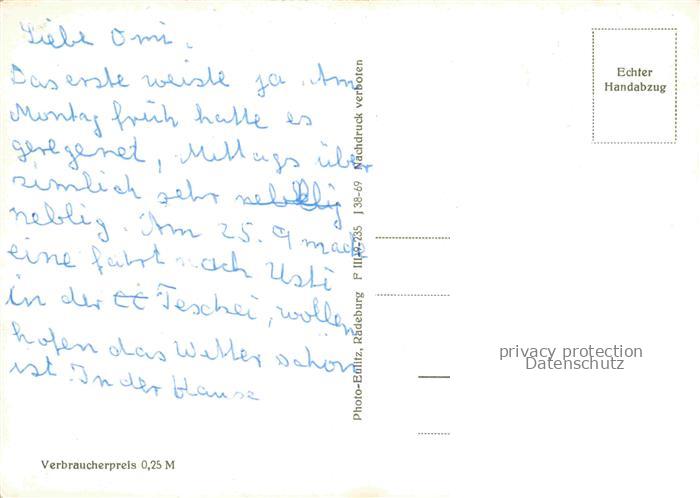 Liebe Omi,
Das erste weiste ja. Am
Montag früh hatte es
geregenet, Mittags über
zimlich sehr
neblig. Am 25. 9 macht
eine fahrt nach Usti
in der Teschei, wollen
hofen das Wetter schön
ist. In der Hause
Verbraucherpreis 0,25 M
Photo-Emlitz, Radeburg P III-9-235 J 38-69 Nachdruck verboten
Echter
Handabzug
privacy protection
Datenschutz